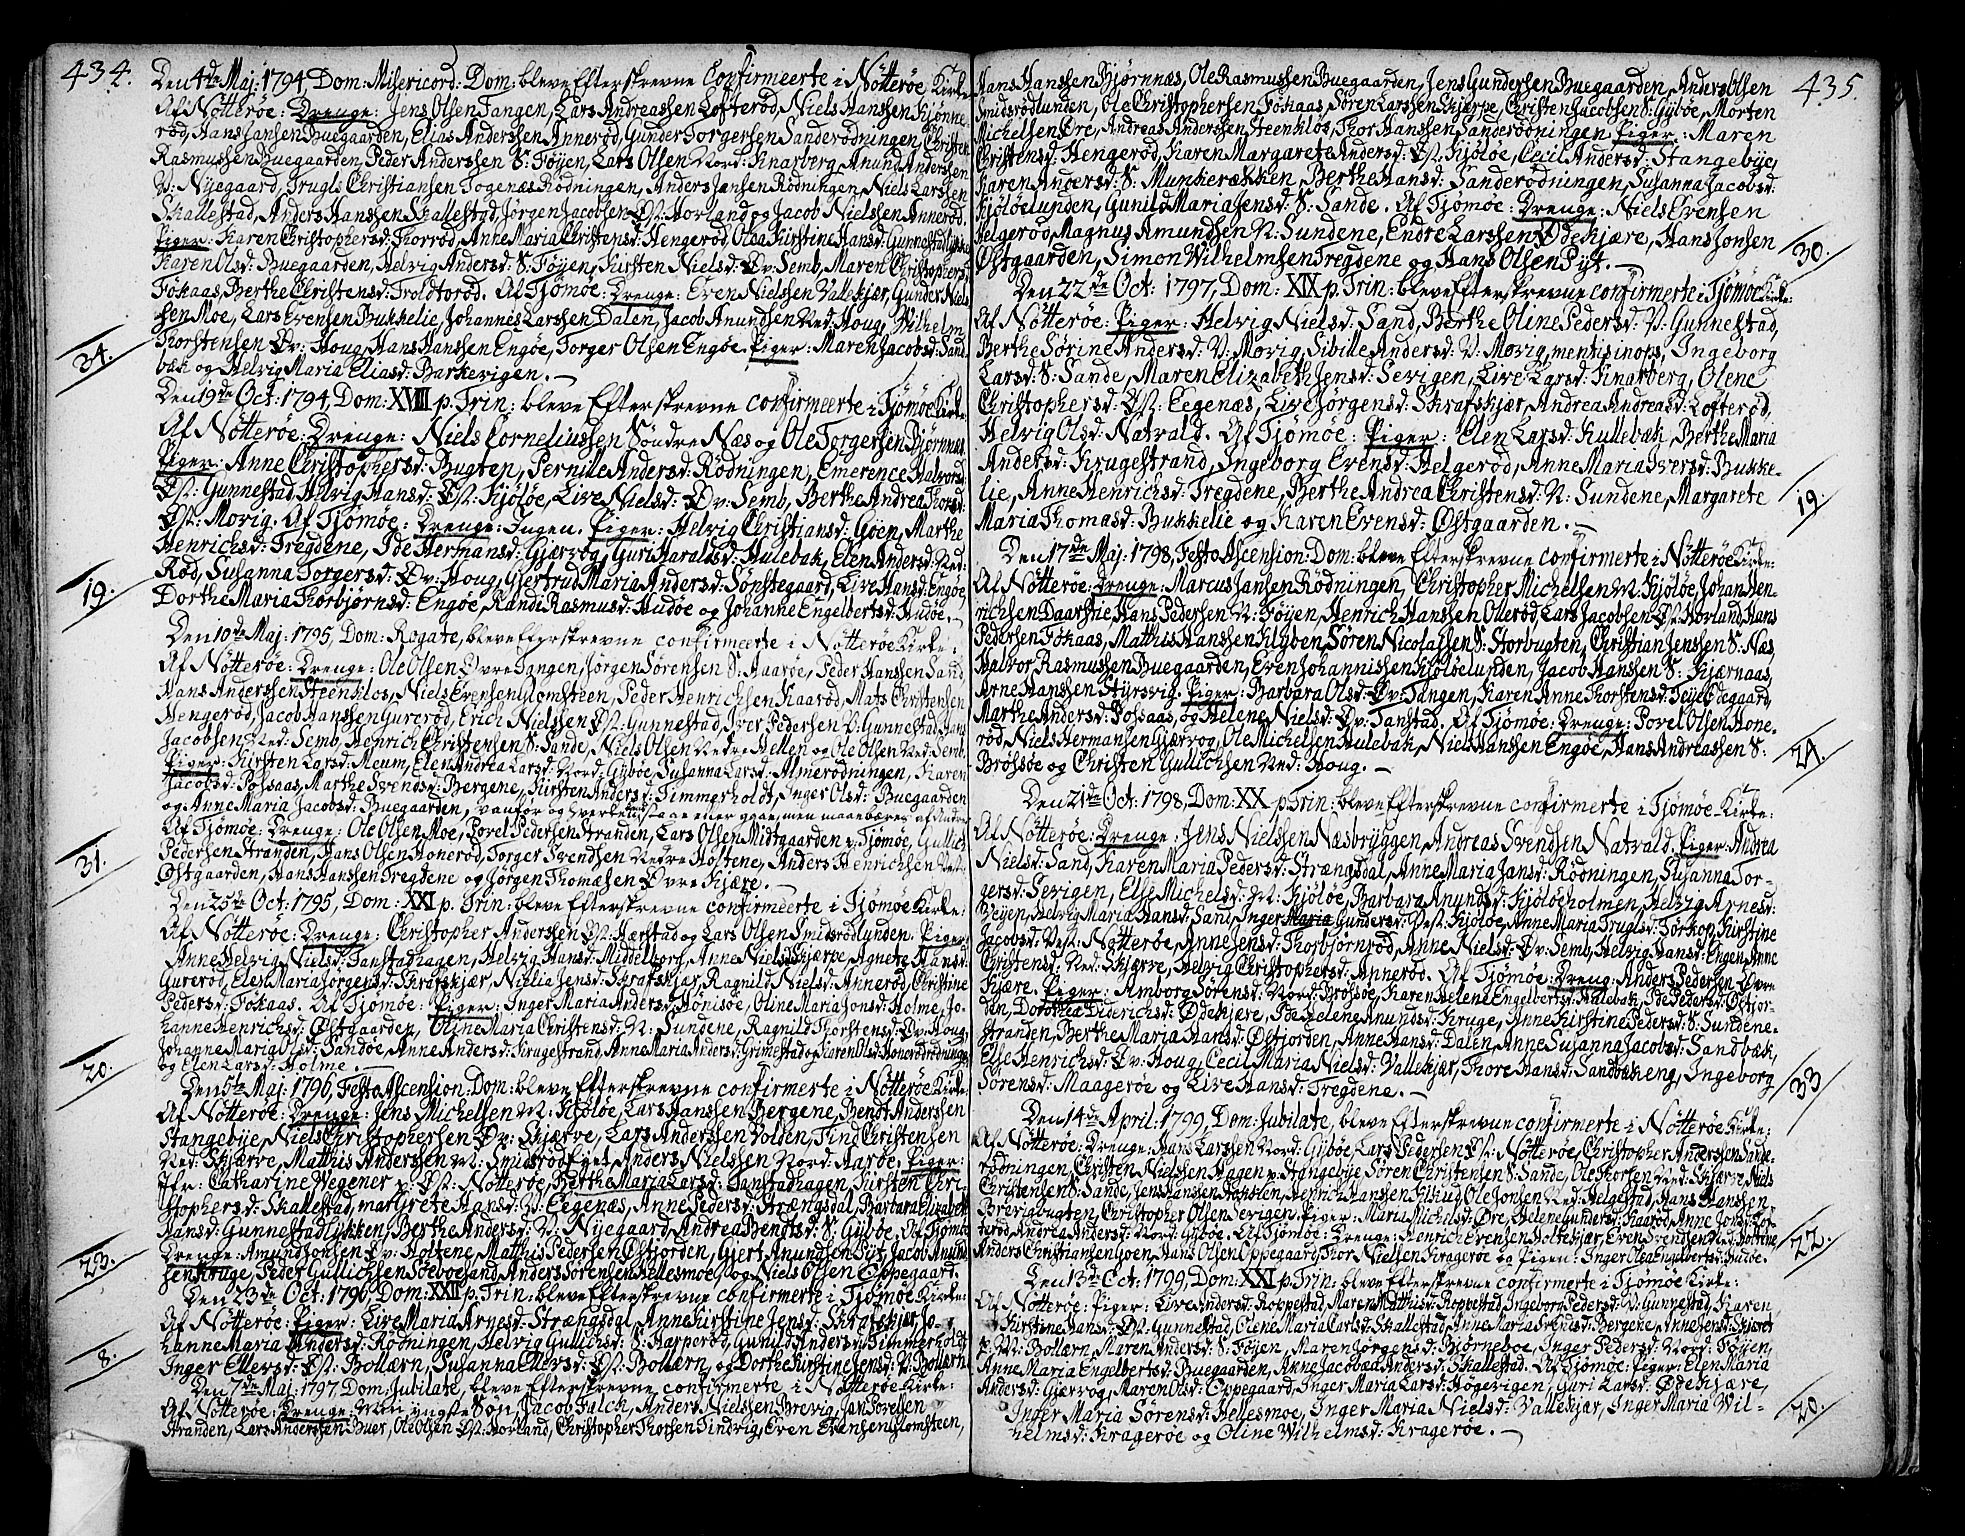 434.
Den 4de Maj: 1794, Dom: Misericord: Dom: bleve Efterskrevne Confirmeerte i Nötteröe Kirke
Af Nötteröe: Drenge: Jens Olsen Tangen, Lars Andreassen Lofteröd, Niels Hanssen Kjönne-
röd, Hans Jansen Buegaarden, Elias Anderssen Anneröd, Gunder Torgersen Sanderödningen, Christen
Rasmussen Buegaarden, Peder Anderssen S: Föyen, Lars Olsen Nord: Knarberg, Anund Andersen
V: Nyegaard, Trugls Christiansen Togenæs Rödningen, Anders Jansen Rödningen, Niels Larssen
Skallestad, Anders Hanssen Skallestad, Jörgen Jacobsen Øst: Horland og Jacob Nielssen Anneröd.
Piger: Karen Christophersd: Thorröd, Anne Maria Christensd: Hengeröd, Olea Kirstine Hansd: Gunnestad
Karen Olsd: Buegaarden, Helvig Andersd: S: Föyen, Kirsten Nielsd: Øv: Semb, Maren Christophersd:
Fokaas, Berthe Christensd: Troldtoröd. Af Tjömöe: Drenge: Even Nielssen Vallekjær, Gunder Niels-
sen Moe, Lars Evensen Bukkelie, Johannes Larssen Dalen, Jacob Anundsen Ned: Houg, Wilhelm
Thorstensen Øv: Houg, Hans Hanssen Engöe, Torger Olsen Engöe. Piger: Maren Jacobsd: Sand-
bæk og Helvig Maria Eliasd: Barkevigen.
34.
Den 19de Oct: 1794, Dom: XVIII p. Trin: bleve Efterskrevne confirmeerte i Tjömöe Kirke:
Af Nötteröe: Drenge: Niels Corneliussen Söndre Næs og Ole Torgersen Bjönnæs
Piger: Anne Christophersd: Bugten, Pernille Andersd: Rödningen, Emerence Halvorsd:
Øst: Gunnestad, Helvig Hansd: Øst: Kjölöe, Live Nielsd: Øv: Semb, Berthe Andrea Thorsd:
Øst: Movig. Af Tjömöe: Drenge: Ingen. Piger: Helvig Christiansd: Goen, Marthe
Henrichsd: Tregdene, Ide Hermansd: Gjærvog, Guri Haraldsd: Hulebak, Elen Andersd: Ned:
Röd, Susanna Torgersd: Øv: Houg, Gjertrud Maria Andersd: Sönstegaard, Live Hansd: Engöe,
Dorthe Maria Thorbjörnsd: Engöe, Randi Rasmusd: Hudöe og Johanne Engelbertsd: Hudöe.
19.
Den 10de Maj: 1795, Dom: Rogate, bleve Efterskrevne confirmeerte i Nötteröe Kirke:
Af Nötteröe: Drenge: Ole Olsen Øvre Tangen, Jörgen Sörensen S: Aaröe, Peder Hanssen Sand,
Hans Anderssen Steenklos, Niels Evensen Glomsteen, Peder Henrichsen Kaaröd, Mats Christensen
Hengeröd, Jacob Hanssen Gureröd, Erich Nielssen Øst: Gunnestad, Iver Pedersen V: Gunnestad, Hans
Jacobsen Ned: Semb, Henrich Christensen S: Sande, Niels Olsen Nedre Hellen og Ole Olsen Ned: Semb.
Piger: Kirsten Larsd: Meum, Elen Andrea Larsd: Nord: Gyböe, Susanna Larsd: Almerödningen, Karen
Jacobsd: Possaas, Marthe Svendsd: Bergene, Kirsten Andersd: Timmerholdt, Inger Olsd: Buegaarden
og Anne Maria Jacobsd: Buegaarden,
Af Tjömöe: Drenge: Ole Olsen Moe, Povel Pedersen Stranden, Lars Olsen Midtgaarden p. Tjömöe, Gullich
Pedersen Stranden, Hans Olsen Honeröd, Torger Svendsen Nedre Holtene, Anders Henrichsen
Østgaarden, Hans Hanssen Tregdene og Jörgen Thomæsen Øvre Kjære.
31.
Den 25de Oct: 1795, Dom: XXI p. Trin: bleve Efterskrevne confirmeerte i Tjömöe Kirke:
Af Nötteröe: Drenge: Christopher Anderssen Øst: Hærstad og Lars Olsen Smidsrödlunden. Piger:
Anne Helvig Nielsd: Tanstadhagen, Helvig Hansd: Middelborg, Anne Nielsd: Skjærve, Agnete Hansd:
Gureröd, Elen Maria Jörgensd: Skrafskjær, Nielia Jensd: Skrafskjær, Ragnild Nielsd: Anneröd, Christine
Pedersd: Fokaas. Af Tjömöe: Piger: Inger Maria Andersd: Honisöe, Oline Maria Jonsd: Holme, Jo-
hanne Henrichsd: Østgaarden, Oline Maria Christensd: N: Sundene, Ragnild Thorstensd: Øv: Houg,
Johanne Maria Olsd: Sandöe, Anne Andersd: Krugestrand, Anne Maria Andersd: Grimestad og Karen Olsd: Honerödrödningen
og Elen Larsd: Holme.
20.
Den 5te Maj: 1796, Festo Ascension: Dom: bleve Efterskrevne confirmerte i Nötteröe Kirke:
Af Nötteröe: Drenge: Jens Michelsen M: Kjölöe, Lars Hanssen Bergene, Bendt Anderssen
Stangebye, Niels Christophersen Øv: Skjærve, Lars Anderssen Volden, Find Christensen
Ned: Skjærve, Matthis Anderssen M: Smidsröd Eyet, Anders Nielssen Nord: Aaröe. Piger:
Jfr: Catharine Wegener p. Øst: Nötteröe, Berthe Maria Larsd: Tanstadhagen, Kirsten Chri-
stophersd: Skallestad, Margrete Hansd: V: Eegenæs, Anne Pedersd: Strængsdal, Barbara Elizabeth
Hansd: Gunnestadlykken, Berthe Andersd: V: Nyegaard, Andrea Bendtsd: S: Gyböe. Af Tjömöe
Drenge: Amund Jonsen Øv: Holtene, Matthis Pedersen Østjorden, Gjert Anundsen Pyt, Jacob Anund-
sen Kruge, Peder Gullichsen Söeboesand, Anders Sörensen Hellesmoe og Niels Olsen Oppegaard.
23.
Den 23de Oct: 1796, Dom: XXII p. Trin: bleve Efterskrevne confirmerte i Tjömöe Kirke:
Af Nötteröe: Piger: Live Maria Arnesd: Strængsdal, Anne Kirstine Jensd: Skrafskjær, Jo-
hanne Maria Andersd: Rödningen, Helvig Gullichsd: S: Harperöd, Gunild Andersd: Timmerholdt
Inger Ellersd: Øst: Bollærn, Susanna Ellersd: Øst: Bollærn, og Dorthe Kirstine Jensd: V: Bollærn
8.
Den 7de Maj: 1797, Dom: Jubilate, bleve Efterskrevne confirmerte i Nötteröe Kirke:
Af Nötteröe: Drenge: Min yngste Sön Jacob Falck, Anders Nielssen Brevig, Jan Toressen
Stranden, Lars Anderssen Buer, Ole Olsen Øst: Horland, Christopher Thorsen Tindvig, Even Evensen Glomsteen,
435.
Hans Hanssen Bjørnnæs, Ole Rasmussen Buegaarden, Jens Gundersen Buegaarden, Anders Olsen
Smidsrödlunden, Ole Christophersen Fokaas, Sören Larssen Skjerpe, Christen Jacobsen S: Gyböe, Morten
Michelsen Øre, Andreas Anderssen Steenklos, Thor Hanssen Sanderödningen. Piger: Maren
Christensd: Hengeröd, Karen Margarete Andersd: Øst: Kjölöe, Cecil Andersd: Stangebye,
Karen Andersd: S: Munkerækken, Berthe Hansd: Sanderödningen, Susanna Jacobsd:
Kjölöelunden, Gunild Maria Jensd: S: Sande. Af Tjömöe: Drenge: Niels Evensen
Helgeröd, Magnus Amundsen N: Sundene, Endre Larssen Ødekjære, Hans Jonsen
Østgaarden, Simon Wilhelmsen Tregdene og Hans Olsen Pyt.
30.
Den 22de Oct: 1797, Dom: XIX p. Trin: bleve Efterskrevne confirmerte i Tjömöe Kirke:
Af Nötteröe: Piger: Helvig Nielsd: Sand, Berthe Oline Pedersd: V: Gunnestad,
Berthe Sörine Andersd: V: Movig, Sibille Andersd: V: Movig, mentis inops, Ingeborg
Larsd: S: Sande, Maren Elizabeth Jensd: Sevigen, Live Larsd: Knarberg, Olene
Christophersd: Øst: Eegenæs, Live Jörgensd: Skrafskjær, Andrea Andreasd: Lofteröd,
Helvig Olsd: Natvald. Af Tjömöe: Piger: Elen Larsd: Kullebak, Berthe Maria
Andersd: Krugestrand, Ingeborg Evensd: Helgeröd, Anne Maria Iversd: Bukke-
lie, Anne Henrichsd: Tregdene, Berthe Andrea Christensd: N: Sundene, Margarete
Maria Thomasd: Bukkelie og Karen Evensd: Østgaarden.
19.
Den 17de Maj: 1798, Festo Ascension: Dom: bleve Efterskrevne confirmerte i Nötteröe Kirke:
Af Nötteröe: Drenge: Marcus Jansen Rödningen, Christopher Michelsen M: Kjölöe, Johan Hen-
richsen Daarstie, Hans Pedersen N: Föyen, Henrich Hanssen Olleröd, Lars Jacobsen Øst: Horland, Hans
Pedersen Fokaas, Matthis Hanssen Klyven, Sören Nicolaisen S: Storbugten, Christian Jenssen S: Næs,
Halvor Rasmussen Buegaarden, Even Johannissen Kjölöelunden, Jacob Hanssen S: Kjærnaas,
Arne Hanssen Styrsvig. Piger: Barbara Olsd: Øv: Tangen, Karen Anne Thorstensd: Teye Ødegaard,
Marthe Andersd: Possaas, og Helene Nielsd: Øv: Tanstad. Af Tjömöe: Drenge: Povel Olsen Hone-
röd, Niels Hermansen Gjærvog, Ole Michelsen Hulebak, Niels Hanssen Engöe, Hans Andreassen S:
Brötsöe og Christen Gullichsen Ned: Houg.
24.
Den 21de Oct: 1798, Dom: XX p. Trin: bleve Efterskrevne confirmerte i Tjömöe Kirke:
Af Nötteröe: Drenge: Jens Nielssen Næsbryggen, Andreas Svendsen Natvald. Piger: Andrea
Nielsd: Sand, Karen Maria Pedersd: Strængsdal, Anne Maria Jansd: Rödningen, Susanna Tor-
gersd: Sevigen, Else Michelsd: M: Kjölöe, Barbara Anundsd: Kjölöeholmen, Helvig Arnesd:
Veyen, Helvig Maria Hansd: Sand, Inger Maria Gundersd: Vest: Kjölöe, Anne Maria Truglsd: Torkop, Kirstine
Jacobsd: Vest: Nötteröe, Anne Jensd: Thorbjörnröd, Anne Nielsd: Øv: Semb, Helvig Hansd: Engen, Anne
Christensd: Ned: Skjærve, Helvig Christophersd: Anneröd. Af Tjömöe: Dreng: Anders Pedersen Øvre
Kjære. Piger: Amborg Sörensd: Nord: Brötsöe, Karen Helene Engelbertsd: Hulebak, Ide Pedersd: Østjor-
den, Dorothea Diderichsd: Ødekjære, Ide Helene Anundsd: Kruge, Anne Kirstine Pedersd: S: Sundene-
stranden, Berthe Maria Hansd: Østjorden, Anne Hansd: Dalen, Anne Susanna Jacobsd: Sandbæk,
Else Henrichsd: Øv: Houg, Cecil Maria Nielsd: Vallekjær, Thore Hansd: Sandbækeng, Ingeborg
Sörensd: Maageröe og Live Hansd: Tregdene.
33
Den 14de April: 1799, Dom: Jubilate, bleve Efterskrevne confirmerte i Nötteröe Kirke:
Af Nötteröe: Drenge: Hans Larssen Nord: Gyböe, Lars Pedersen Øst: Nötteröe, Christopher Anderssen Sande-
rödningen, Christen Nielssen Hagen p. Stangebye, Sören Christensen S: Sande, Ole Thorsen Ned: Skjærve, Niels
Christensen S: Sande, Jens Hanssen Holsten, Henrich Hanssen Ekkud, Ole Jonsen Ned: Helgestad, Hans Hanssen
Brevigbugten, Christopher Olsen Sevigen. Piger: Maria Michelsd: Øre, Helene Gundersd: Kaaröd, Anne Jonsd: Lof-
teröd, Andrea Andersd: Nord: Gyböe. Af Tjömöe: Drenge: Henrich Evensen Holtekjær, Even Svendsen Ned: Holtene,
Anders Christiansen Goen, Hans Olsen Oppegaard, Thor Nielssen Krageröe og Pigen: Inger Olea Engelbertsd: Hudöe.
22.
Den 13de Oct: 1799, Dom: XXI p. Trin: bleve Efterskrevne confirmerte i Tjömöe Kirke:
Af Nötteröe: Piger: Live Andersd: Roppestad, Maren Matthisd: Roppestad, Ingeborg Pedersd: V: Gunnestad, Karen
Kirstine Hansd: Øst: Gunnestad, Olene Maria Carlsd: Skallestad, Anne Maria Svendsd: Bergene, Anne Jensd:
p. V: Bollærn, Maren Andersd: S: Föyen, Maren Jörgensd: Björneboe, Inger Pedersd: Nord: Föyen,
Anne Maria Engelbertsd: Buegaarden, Anne Jacobea Andersd: Skallestad. Af Tjömöe: Piger: Elen Maria
Andersd: Gjærvog, Maren Olsd: Oppegaard, Inger Maria Larsd: Högevigen, Guri Larsd: Ødekjære,
Inger Maria Sörensd: Hellesmoe, Inger Maria Nielsd: Vallekjær, Inger Maria Wil-
helmsd: Krageröe og Oline Wilhelmsd: Krageröe.
20.